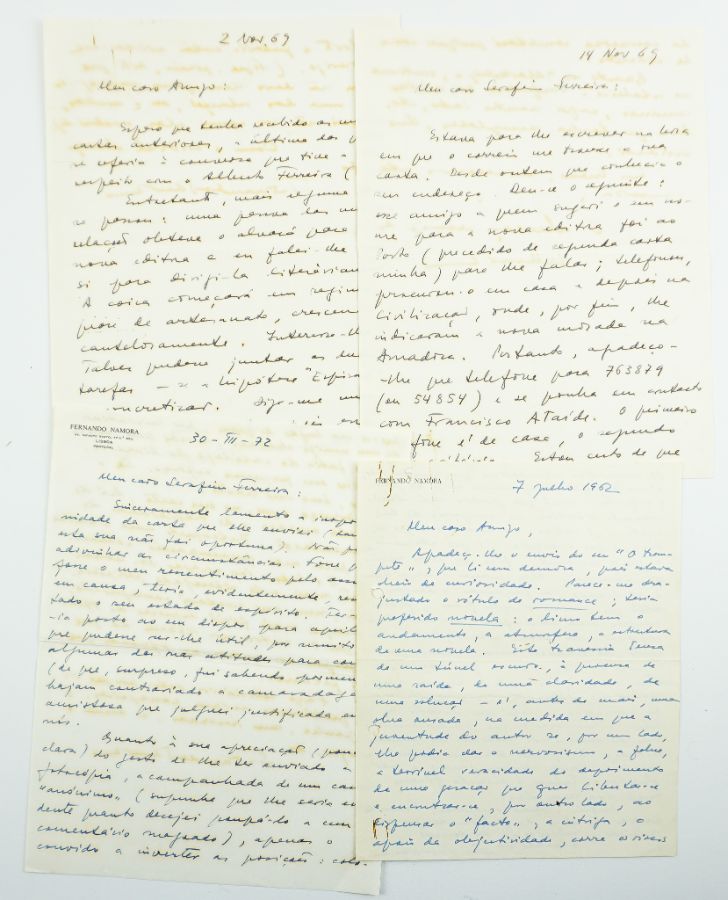 2 Nov. 69
Meu caro Amigo:
Espero que tenha recebido as
cartas anteriores, a última das
se referia à conversa que tive a
respeito com o Alberto Ferreira (
Entretanto, mais alguma
se passou: uma pessoa das
relações obteve o alvará para
nova editora e eu falei-lhe
si para dirigi-la literàriam
A coisa começará em regim
de artesanato, crescen
cautelosamente. Interessa-lh
Talvez pudesse juntar as
tarefas — se a hipótese "
concretizar. Diga-me
14 Nov 69
Meu caro Serafim Ferreira:
Estava para lhe escrever na hora
em que o correio me trouxe a sua
carta. Desde ontem que conhecia o
seu endereço. Deu-se o seguinte:
esse amigo a quem sugeri o seu no-
me para a nova editora foi ao
Porto (precedido de segunda carta
minha) para lhe falar; telefonou,
procurou-o em casa e depois na
Civilização, onde, por fim, lhe
indicaram a nova morada na
Amadora. Portanto, agradeço-
-lhe que telefone para 765879
(ou 54854) e se ponha em contacto
com Francisco Ataíde. O primeiro
fone é de casa, o segundo
Estou certo de que
FERNANDO NAMORA
LISBOA
PORTUGAL
30-III-72
Meu caro Serafim Ferreira:
Sinceramente lamento a inopor
nidade da carta que lhe enviei (
esta sua não foi oportuna). Não
adivinhar as circunstâncias.
fosse o meu ressentimento pelo
em causa, teria, evidentemente, res
tado o seu estado de espírito. Ter-
-ia posto ao seu dispor para aquilo
que pudesse ser-lhe útil, por muito
algumas das suas atitudes para
(de que, surpreso, fui sabendo
hajam contrariado a camaradagem
amistosa que julguei justificada
nós.
Quanto à sua apreciação (
clara) do gesto de lhe ter enviado a
fotocópia, acompanhada de um
"anónimo" (supunha que lhe seria
dente quanto desejei poupá-lo a
comentário magoado), apenas o
convido a inverter as posições: colo-
FERNANDO NAMORA
7 julho 1962
Meu caro Amigo,
Agradeço-lhe o envio do seu "O trom-
pete", que li sem demora, pois estava
cheio de curiosidade. Parece-me des-
ajustado o rótulo de romance; teria
preferido novela: o livro tem o
andamento, a atmosfera, a estrutura
de uma novela. Esta travessia
de um túnel escuro, à procura de
uma saída, de uma claridade, de
uma solução — é, antes de mais, uma
obra ousada, na medida em que a
juventude do autor se, por um lado,
lhe podia dar o nervosismo, a febre,
a terrível veracidade do depoimento
de uma geração que quer libertar-se
e encontrar-se, por outro lado, ao
dispensar o "facto", a intriga, o
apoio da objectividade, corre os riscos